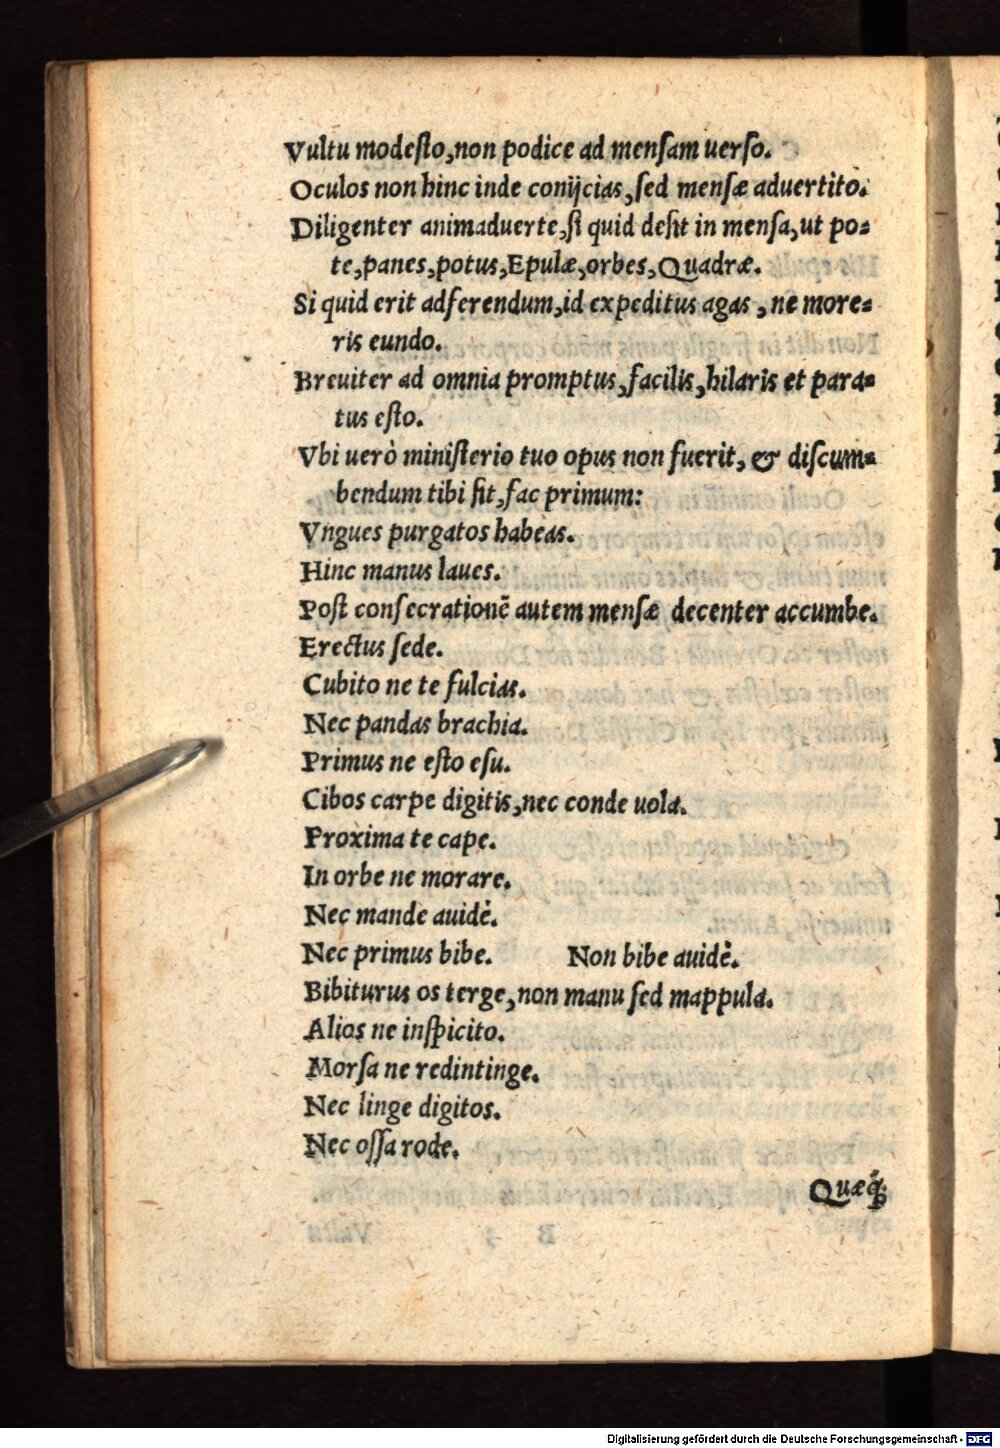 Vultu modesto, non podice ad mensam uerso.
Oculos non hinc inde conijcias, sed mensæ aduertito.
Diligenter animaduerte, si quid desit in mensa, ut po=
te, panes, potus, Epulæ, orbes, Quadræ.
Si quid erit adferendum, id expeditus agas, ne more=
ris eundo.
Breuiter ad omnia promptus, facilis, hilaris et para=
tus esto.
Vbi uerò ministerio tuo opus non fuerit, & discum=
bendum tibi sit, fac primum:
Vngues purgatos habeas.
Hinc manus laues.
Post consecrationē autem mensæ decenter accumbe.
Erectus sede.
Cubito ne te fulcias.
Nec pandas brachia.
Primus ne esto esu.
Cibos carpe digitis, nec conde uola.
Proxima te cape.
In orbe ne morare.
Nec mande auidè.
Nec primus bibe. Non bibe auidè.
Bibiturus os terge, non manu sed mappula.
Alios ne inspicito.
Morsa ne redintinge.
Nec linge digitos.
Nec ossa rode.
Quæq́;
Digitalisierung gefördert durch die Deutsche Forschungsgemeinschaft - DFG